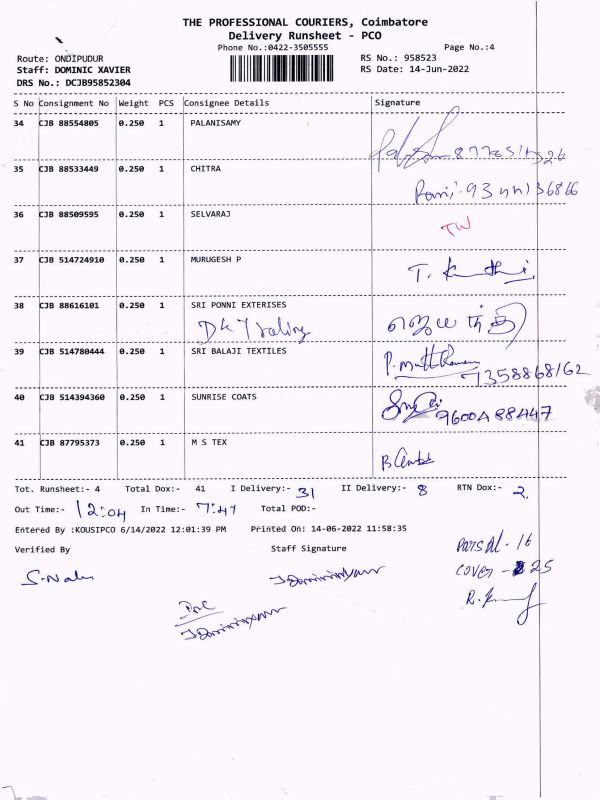 THE PROFESSIONAL COURIERS, Coimbatore
Delivery Runsheet - PCO
Phone No.:0422-3505555 Page No.:4
Route: ONDIPUDUR RS No.: 958523
Staff: DOMINIC XAVIER RS Date: 14-Jun-2022
DRS No.: DCJB95852304
S No Consignment No Weight PCS Consignee Details Signature
34 CJB 88554805 0.250 1 PALANISAMY
35 CJB 88533449 0.250 1 CHITRA
36 CJB 88509595 0.250 1 SELVARAJ
TW
37 CJB 514724910 0.250 1 MURUGESH P
T.
38 CJB 88616101 0.250 1 SRI PONNI EXTERISES
ஜெயந்தி
39 CJB 514780444 0.250 1 SRI BALAJI TEXTILES
7358868162
40 CJB 514394360 0.250 1 SUNRISE COATS
9600488447
41 CJB 87795373 0.250 1 M S TEX
Tot. Runsheet:- 4 Total Dox:- 41 I Delivery:- 31 II Delivery:- 8 RTN Dox:- 2
Out Time:- 12:04 In Time:- 7:47 Total POD:-
Entered By :KOUSIPCO 6/14/2022 12:01:39 PM Printed On: 14-06-2022 11:58:35
Verified By Staff Signature
- 16
COVER - 25